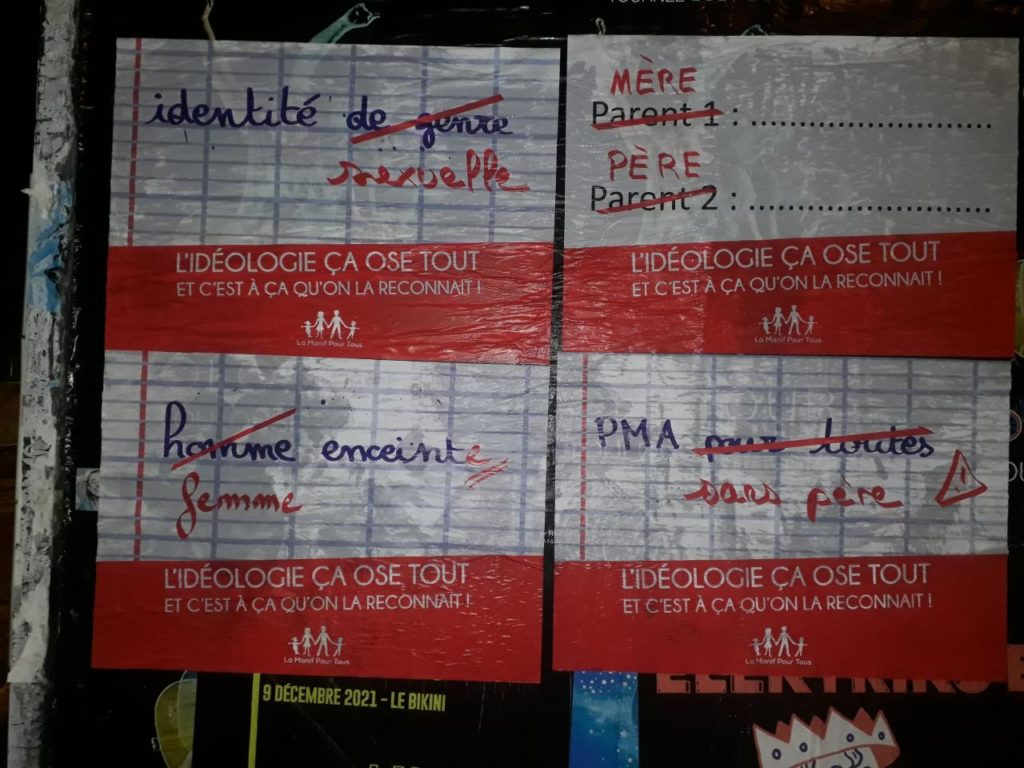 identité de genre
sexuelle
L'IDÉOLOGIE ÇA OSE TOUT
ET C'EST À ÇA QU'ON LA RECONNAIT !
La Manif Pour Tous
MÈRE
Parent 1 : ...............................
PÈRE
Parent 2 : ...............................
L'IDÉOLOGIE ÇA OSE TOUT
ET C'EST À ÇA QU'ON LA RECONNAIT !
La Manif Pour Tous
homme enceinte
femme
L'IDÉOLOGIE ÇA OSE TOUT
ET C'EST À ÇA QU'ON LA RECONNAIT !
La Manif Pour Tous
PMA pour toutes
sans père
L'IDÉOLOGIE ÇA OSE TOUT
ET C'EST À ÇA QU'ON LA RECONNAIT !
La Manif Pour Tous
9 DÉCEMBRE 2021 - LE BIKINI